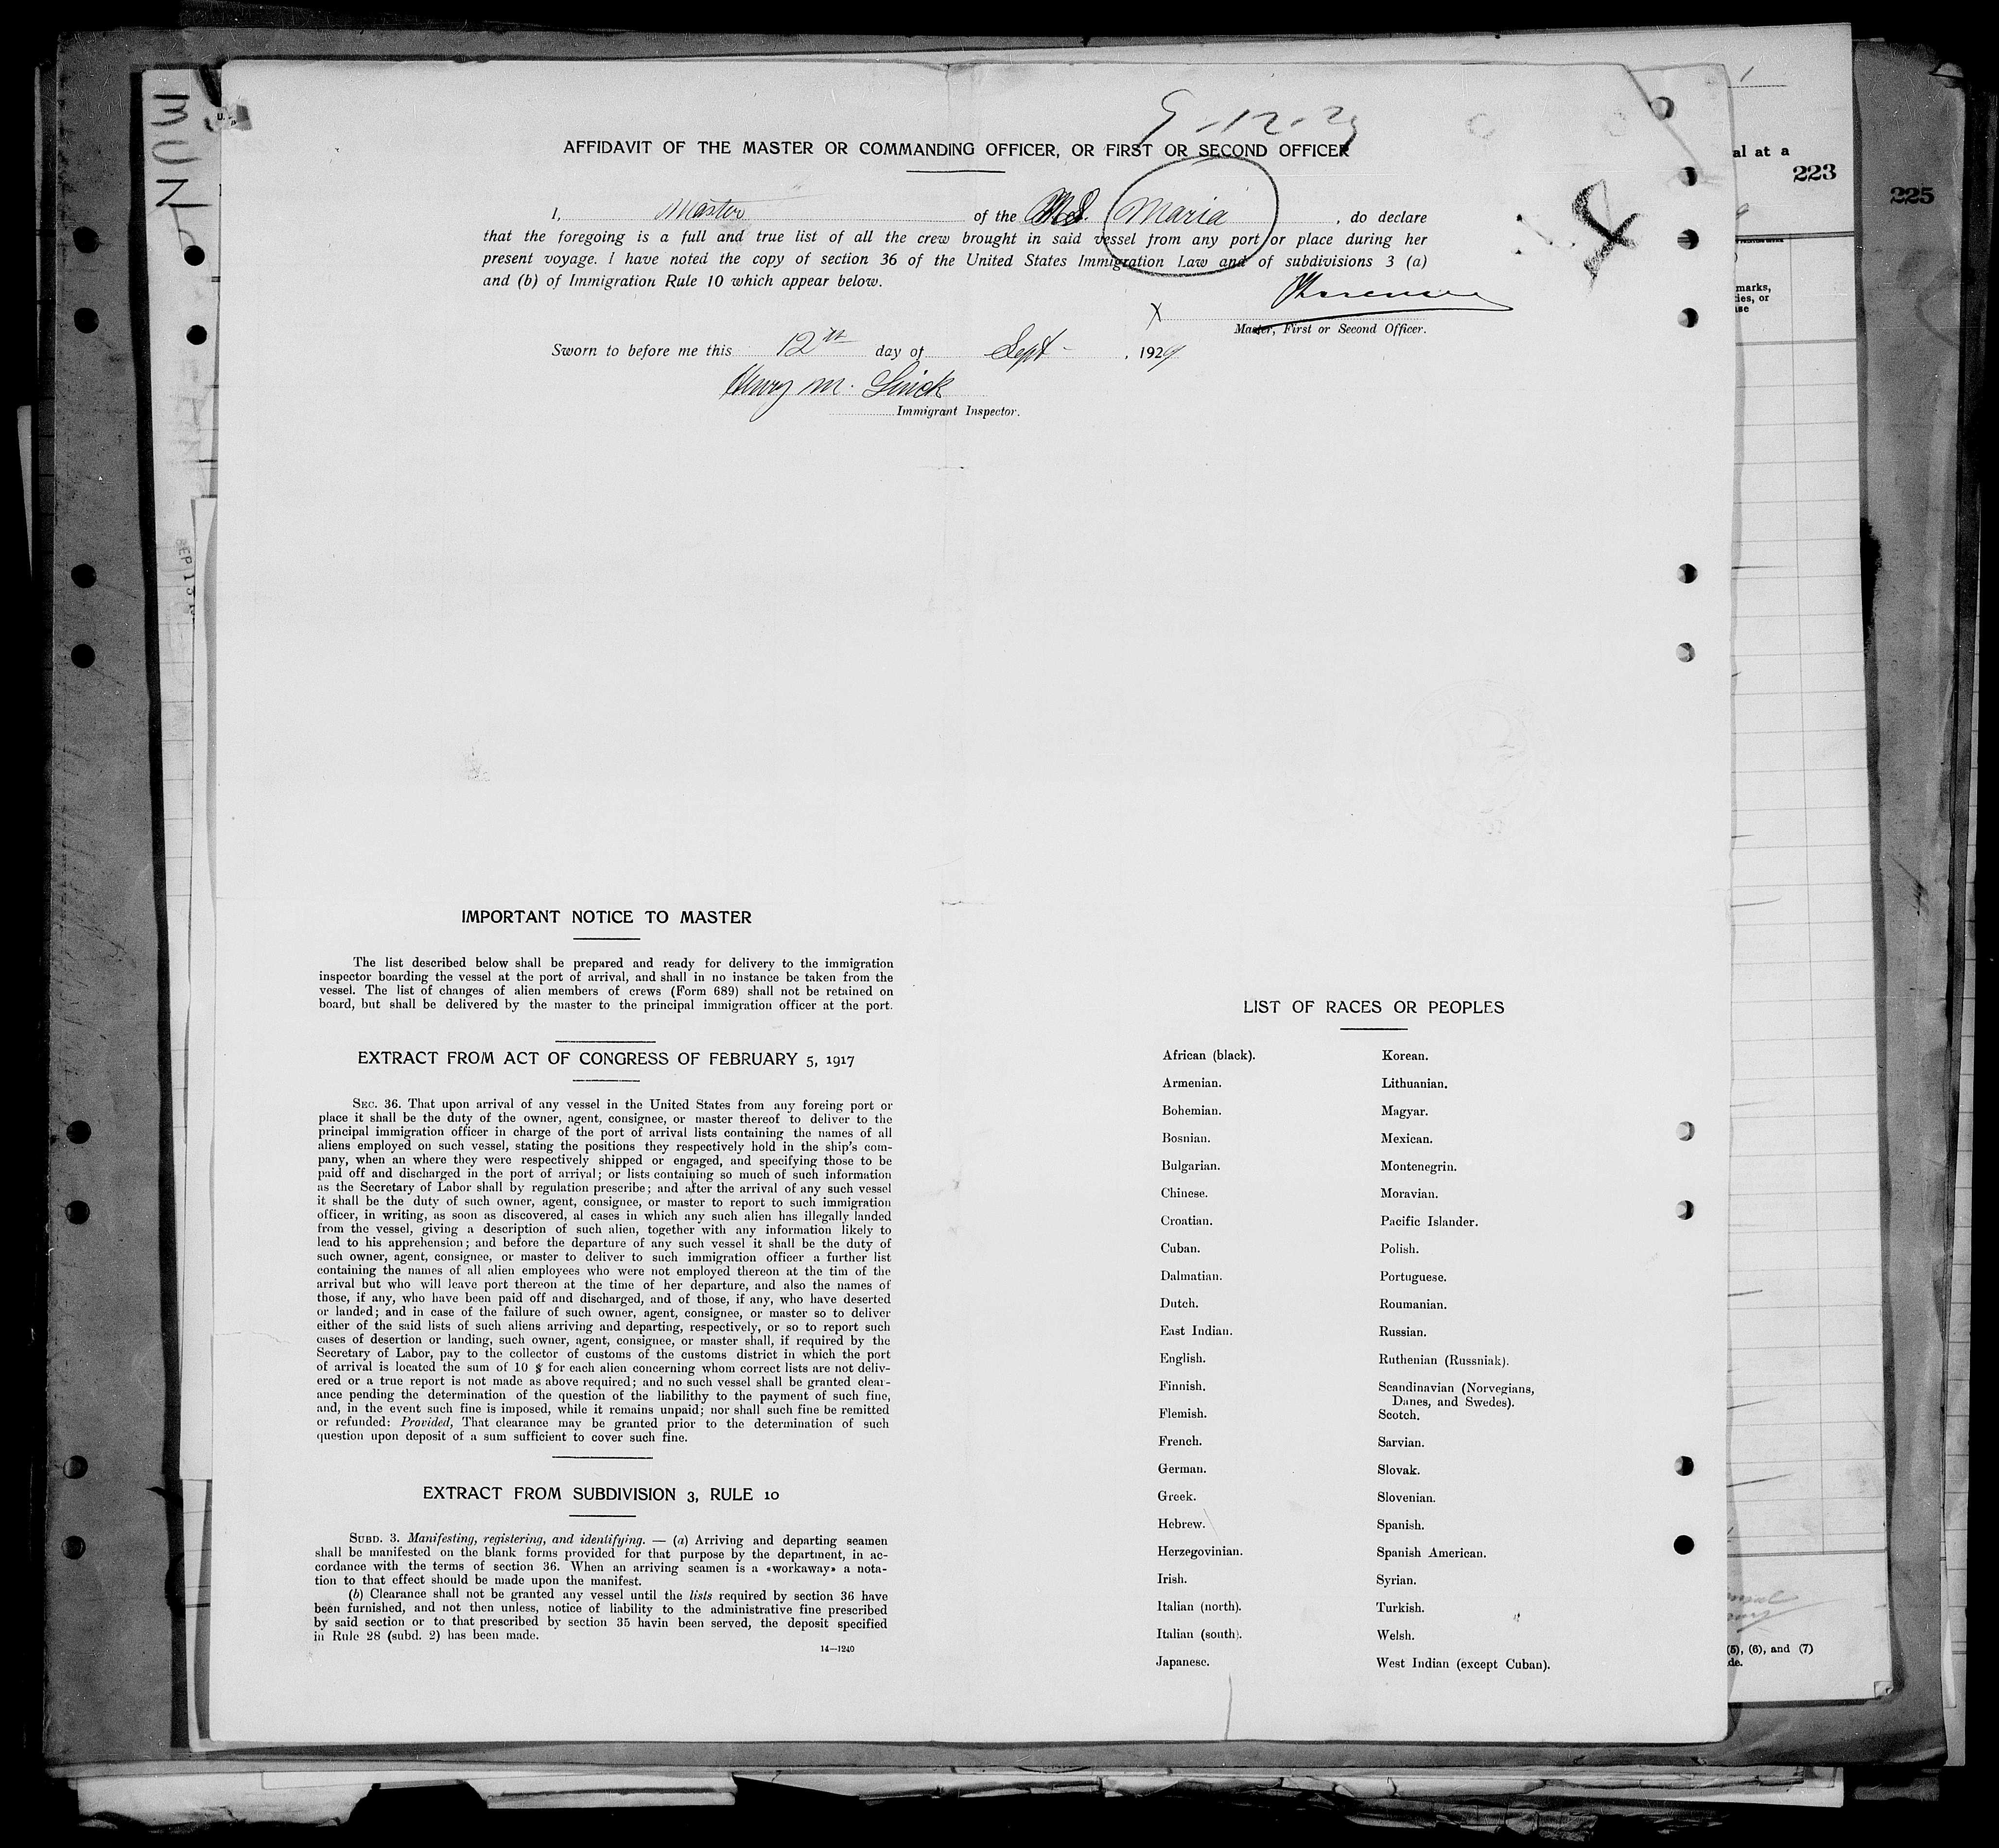 9-12-29
AFFIDAVIT OF THE MASTER OR COMMANDING OFFICER, OR FIRST OR SECOND OFFICER
I, Master of the M.S. Maria, do declare
that the foregoing is a full and true list of all the crew brought in said vessel from any port or place during her
present voyage. I have noted the copy of section 36 of the United States Immigration Law and of subdivisions 3 (a)
and (b) of Immigration Rule 10 which appear below.
X
Master, First or Second Officer.
Sworn to before me this 12th day of Sept - , 1929
Henry M.
Immigrant Inspector.
IMPORTANT NOTICE TO MASTER
The list described below shall be prepared and ready for delivery to the immigration
inspector boarding the vessel at the port of arrival, and shall in no instance be taken from the
vessel. The list of changes of alien members of crews (Form 689) shall not be retained on
board, but shall be delivered by the master to the principal immigration officer at the port.
EXTRACT FROM ACT OF CONGRESS OF FEBRUARY 5, 1917
SEC. 36. That upon arrival of any vessel in the United States from any foreing port or
place it shall be the duty of the owner, agent, consignee, or master thereof to deliver to the
principal immigration officer in charge of the port of arrival lists containing the names of all
aliens employed on such vessel, stating the positions they respectively hold in the ship's com-
pany, when an where they were respectively shipped or engaged, and specifying those to be
paid off and discharged in the port of arrival; or lists containing so much of such information
as the Secretary of Labor shall by regulation prescribe; and after the arrival of any such vessel
it shall be the duty of such owner, agent, consignee, or master to report to such immigration
officer, in writing, as soon as discovered, al cases in which any such alien has illegally landed
from the vessel, giving a description of such alien, together with any information likely to
lead to his apprehension; and before the departure of any such vessel it shall be the duty of
such owner, agent, consignee, or master to deliver to such immigration officer a further list
containing the names of all alien employees who were not employed thereon at the tim of the
arrival but who will leave port thereon at the time of her departure, and also the names of
those, if any, who have been paid off and discharged, and of those, if any, who have deserted
or landed; and in case of the failure of such owner, agent, consignee, or master so to deliver
either of the said lists of such aliens arriving and departing, respectively, or so to report such
cases of desertion or landing, such owner, agent, consignee, or master shall, if required by the
Secretary of Labor, pay to the collector of customs of the customs district in which the port
of arrival is located the sum of 10 $ for each alien concerning whom correct lists are not deliv-
ered or a true report is not made as above required; and no such vessel shall be granted clear-
ance pending the determination of the question of the liabilithy to the payment of such fine,
and, in the event such fine is imposed, while it remains unpaid; nor shall such fine be remitted
or refunded: Provided, That clearance may be granted prior to the determination of such
question upon deposit of a sum sufficient to cover such fine.
EXTRACT FROM SUBDIVISION 3, RULE 10
SUBD. 3. Manifesting, registering, and identifying. — (a) Arriving and departing seamen
shall be manifested on the blank forms provided for that purpose by the department, in ac-
cordance with the terms of section 36. When an arriving seamen is a «workaway» a nota-
tion to that effect should be made upon the manifest.
(b) Clearance shall not be granted any vessel until the lists required by section 36 have
been furnished, and not then unless, notice of liability to the administrative fine prescribed
by said section or to that prescribed by section 35 havin been served, the deposit specified
in Rule 28 (subd. 2) has been made.
14—1240
LIST OF RACES OR PEOPLES
African (black). Korean.
Armenian. Lithuanian.
Bohemian. Magyar.
Bosnian. Mexican.
Bulgarian. Montenegrin.
Chinese. Moravian.
Croatian. Pacific Islander.
Cuban. Polish.
Dalmatian. Portuguese.
Dutch. Roumanian.
East Indian. Russian.
English. Ruthenian (Russniak).
Finnish. Scandinavian (Norvegians,
Danes, and Swedes).
Flemish. Scotch.
French. Sarvian.
German. Slovak.
Greek. Slovenian.
Hebrew. Spanish.
Herzegovinian. Spanish American.
Irish. Syrian.
Italian (north). Turkish.
Italian (south). Welsh.
Japanese. West Indian (except Cuban).
al at a
223
225
marks,
ies, or
(5), (6), and (7)
de.
MUN
SEP 13